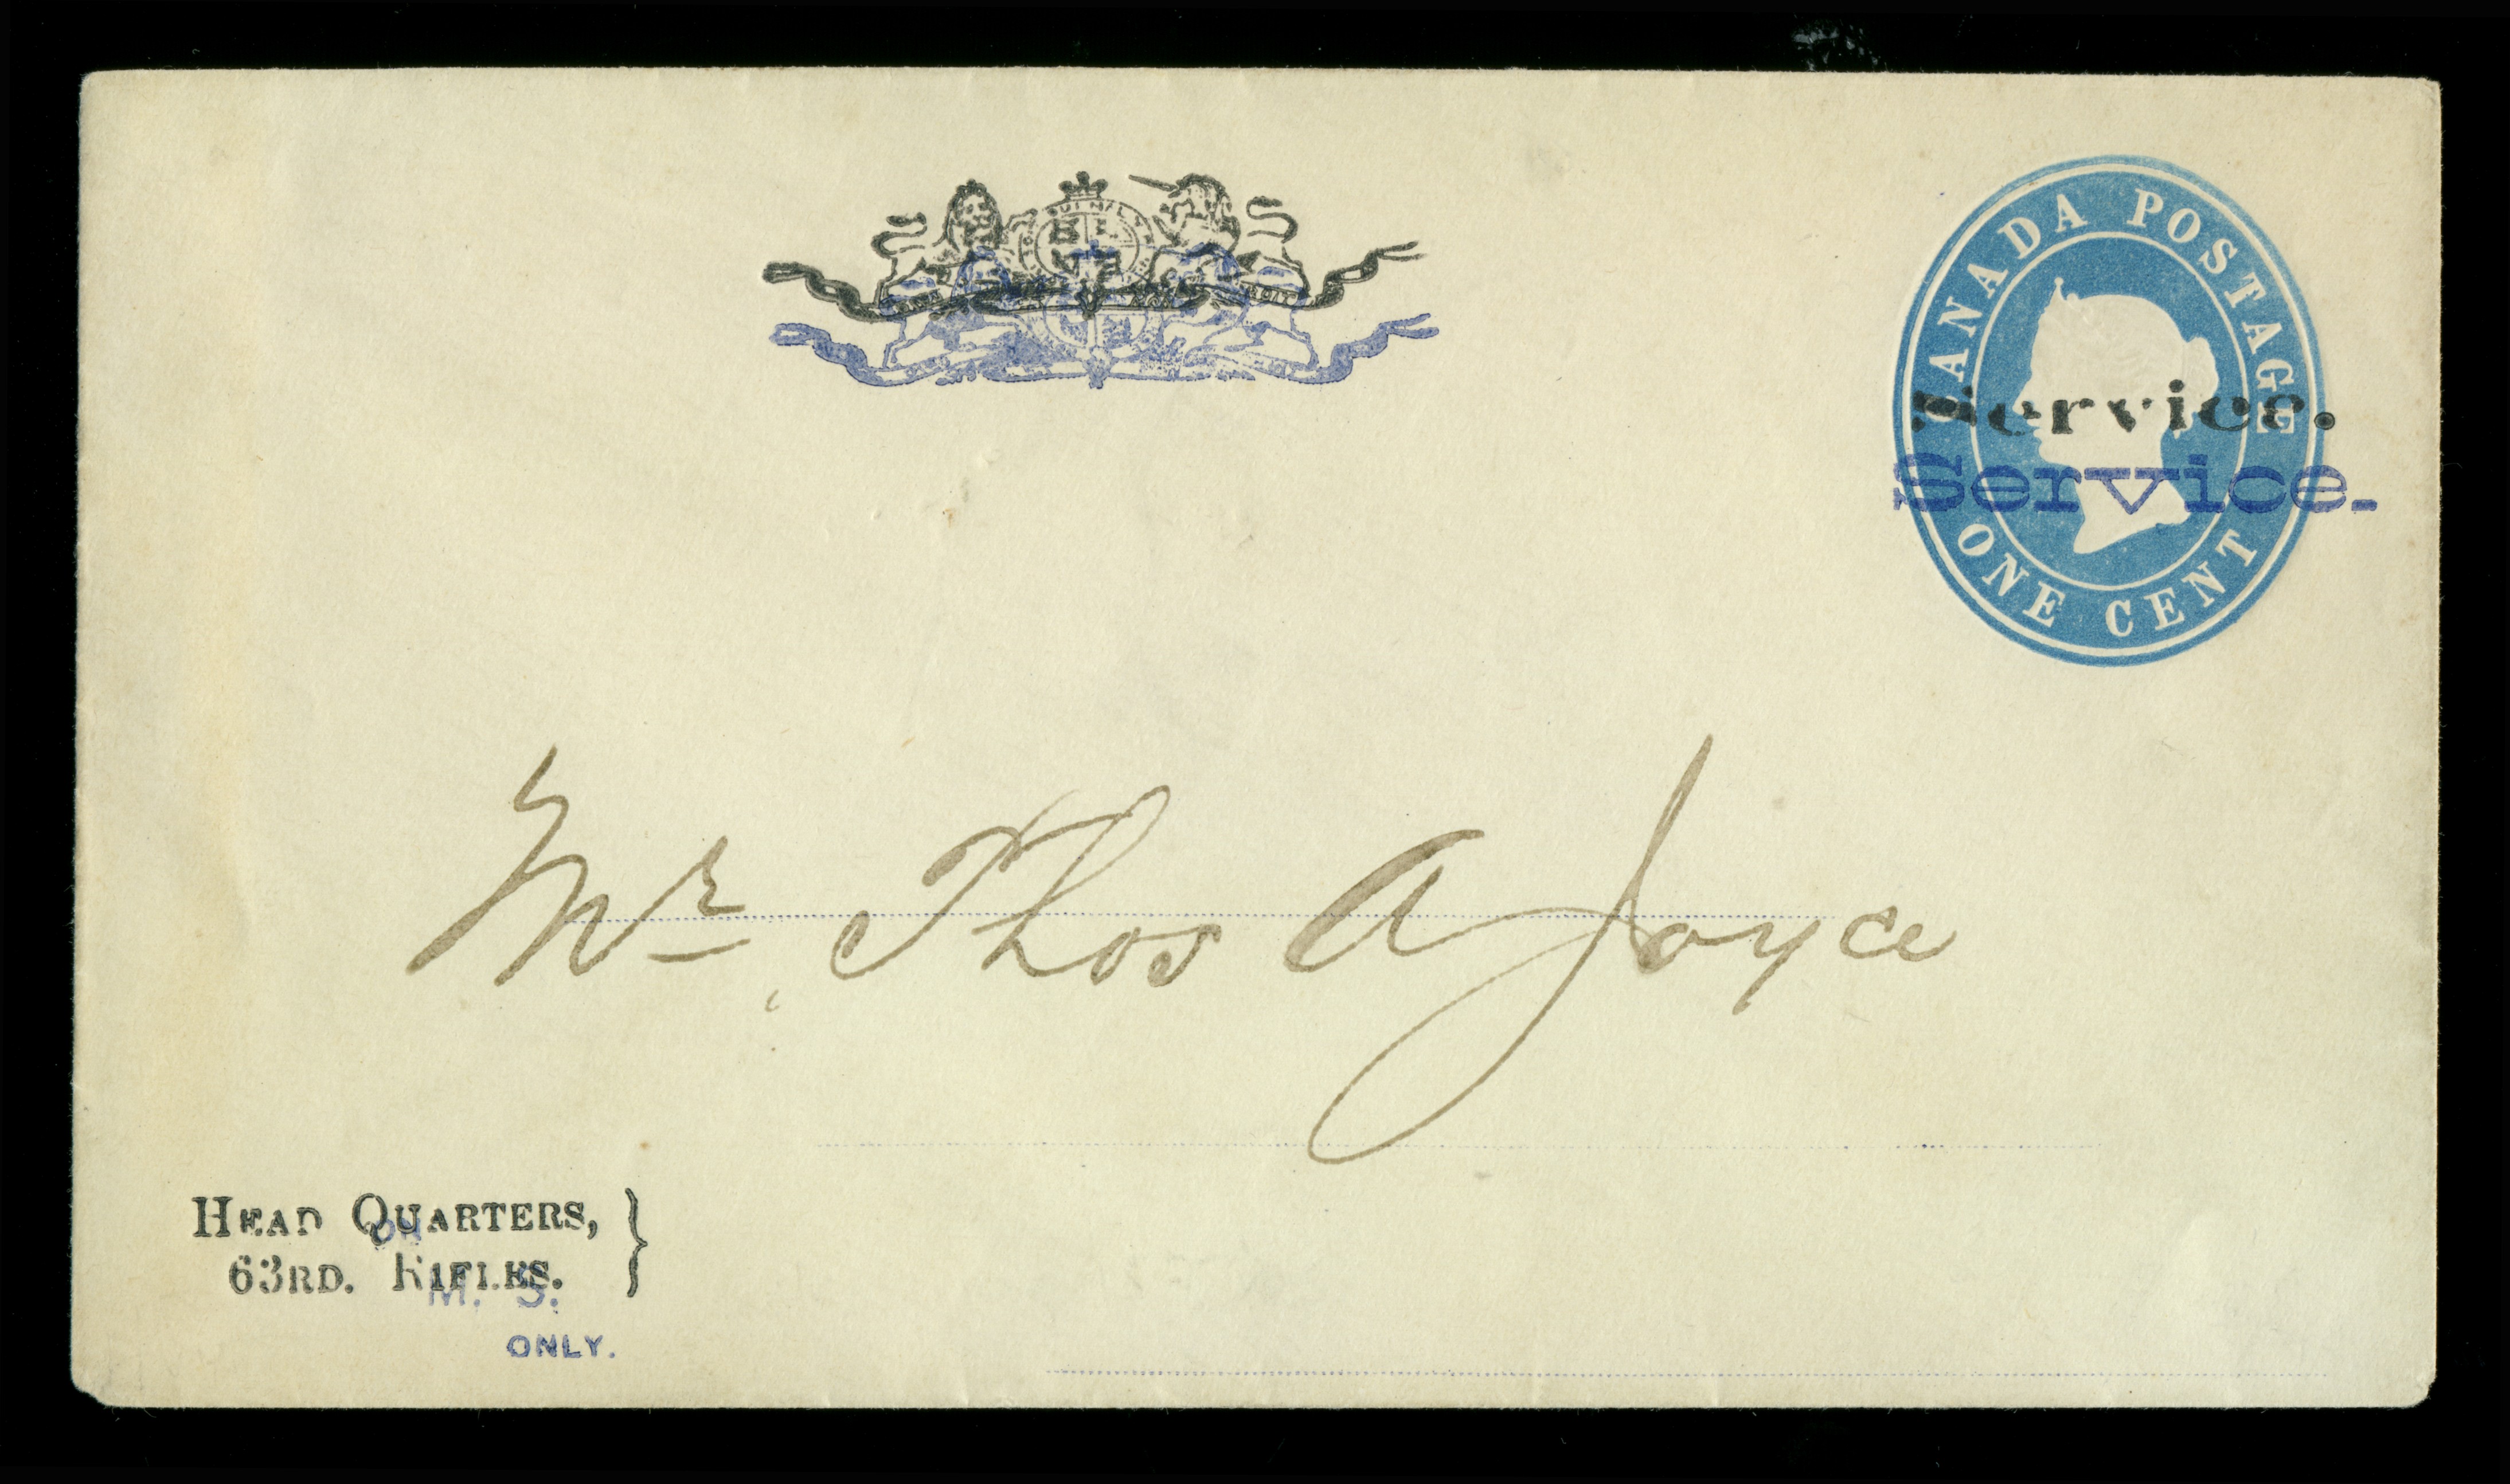 CANADA POSTAGE
Service.
Service.
ONE CENT
Mr Thos A Joyce
HEAD QUARTERS,
ON
63RD. RIFLES.
M. S.
ONLY.